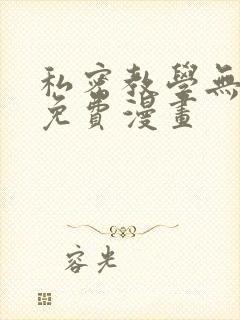 私密教學無
免費漫畫
容光